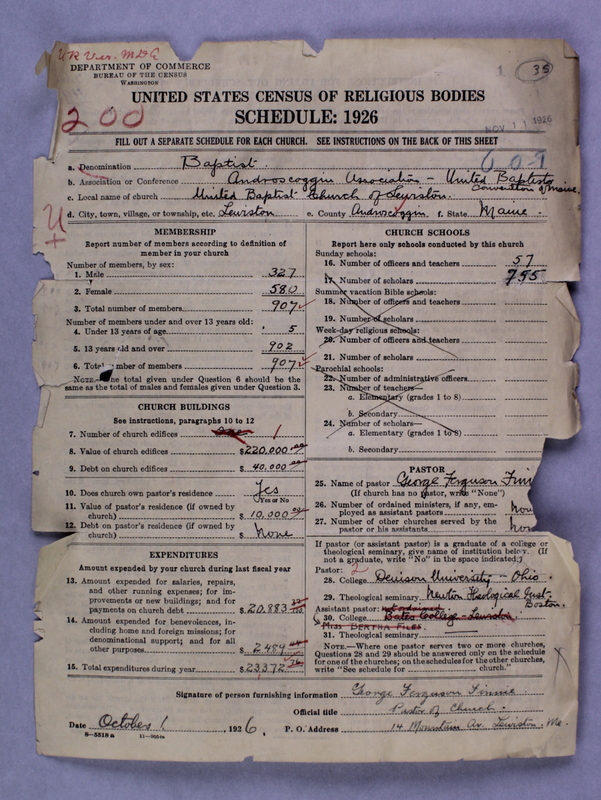 DEPARTMENT OF COMMERCE
BUREAU OF THE CENSUS
WASHINGTON
1 35
UNITED STATES CENSUS OF RELIGIOUS BODIES
SCHEDULE: 1926
200
NOV 11 1926
FILL OUT A SEPARATE SCHEDULE FOR EACH CHURCH. SEE INSTRUCTIONS ON THE BACK OF THIS SHEET
609
a. Denomination Baptist.
b. Association or Conference Androscoggin Association - United Baptists Convention of Maine.
c. Local name of church United Baptist Church of Lewiston.
d. City, town, village, or township, etc. Lewiston e. County Androscoggin. f. State Maine.
U
MEMBERSHIP
Report number of members according to definition of
member in your church
Number of members, by sex:
1. Male 327
2. Female 580
3. Total number of members 907
Number of members under and over 13 years old:
4. Under 13 years of age 5
5. 13 years old and over 902
6. Total number of members 907
NOTE.—The total given under Question 6 should be the
same as the total of males and females given under Question 3.
CHURCH BUILDINGS
See instructions, paragraphs 10 to 12
7. Number of church edifices one 1
8. Value of church edifices $220,000.00
9. Debt on church edifices $40,000.00
10. Does church own pastor's residence Yes
Yes or No
11. Value of pastor's residence (if owned by
church) $10,000.00
12. Debt on pastor's residence (if owned by
church) $ None
EXPENDITURES
Amount expended by your church during last fiscal year
13. Amount expended for salaries, repairs,
and other running expenses; for im-
provements or new buildings; and for
payments on church debt $20,883
14. Amount expended for benevolences, in-
cluding home and foreign missions; for
denominational support; and for all
other purposes $2,489
15. Total expenditures during year $23,372
CHURCH SCHOOLS
Report here only schools conducted by this church
Sunday schools:
16. Number of officers and teachers 57
17. Number of scholars 755
Summer vacation Bible schools:
18. Number of officers and teachers
19. Number of scholars
Week-day religious schools:
20. Number of officers and teachers
21. Number of scholars
Parochial schools:
22. Number of administrative officers
23. Number of teachers—
a. Elementary (grades 1 to 8)
b. Secondary
24. Number of scholars—
a. Elementary (grades 1 to 8)
b. Secondary
PASTOR
25. Name of pastor George Ferguson Finn
(If church has no pastor, write "None")
26. Number of ordained ministers, if any, em-
ployed as assistant pastors Non
27. Number of other churches served by the
pastor or his assistants Non
If pastor (or assistant pastor) is a graduate of a college or
theological seminary, give name of institution below. (If
not a graduate, write "No" in the space indicated.)
Pastor: 2
28. College Denison University - Ohio.
29. Theological seminary Newton Theological Inst.
Boston.
Assistant pastor: not ordained
30. College Bates College - Lewiston
MISS BERTHA FILES.
31. Theological seminary
NOTE.—Where one pastor serves two or more churches,
Questions 28 and 29 should be answered only on the schedule
for one of the churches; on the schedules for the other churches,
write "See schedule for church."
Signature of person furnishing information George Ferguson Finnie
Official title Pastor of Church.
Date October 1, 1926. P. O. Address 14 Mountain Av. Lewiston. Me.
8—5518 a